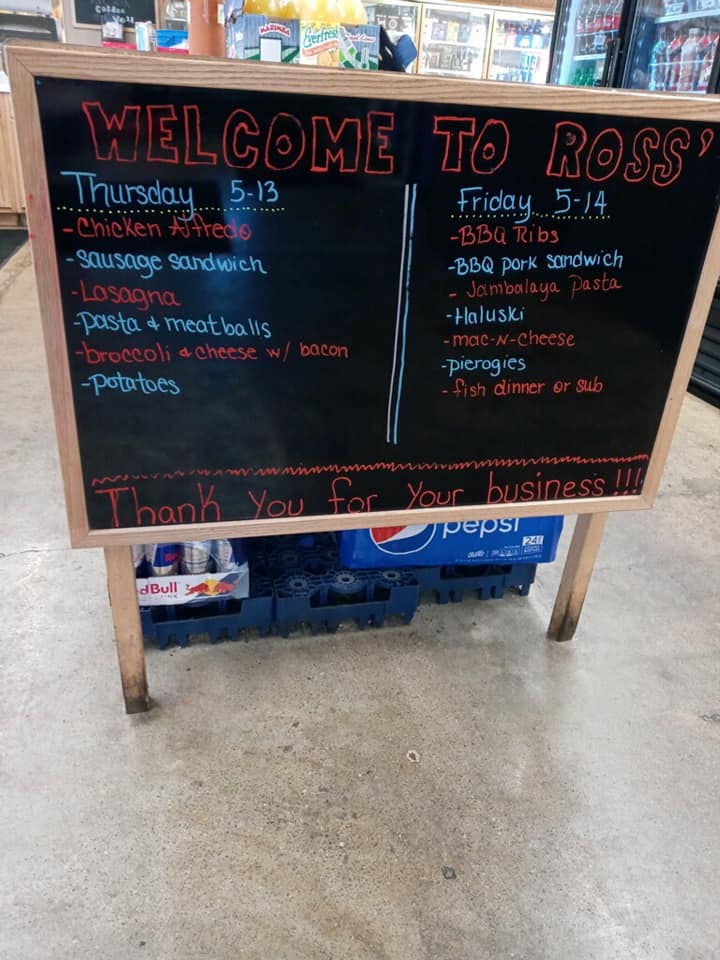 Everfresh
WELCOME TO ROSS'
Thursday 5-13
-Chicken Alfredo
-sausage sandwich
-Lasagna
-pasta & meatballs
-broccoli & cheese w/ bacon
-potatoes
Friday 5-14
-BBQ Ribs
-BBQ pork sandwich
- Jambalaya pasta
-Haluski
-mac-N-cheese
-pierogies
-fish dinner or sub
Thank you for your business!!!
pepsi
24
dBull